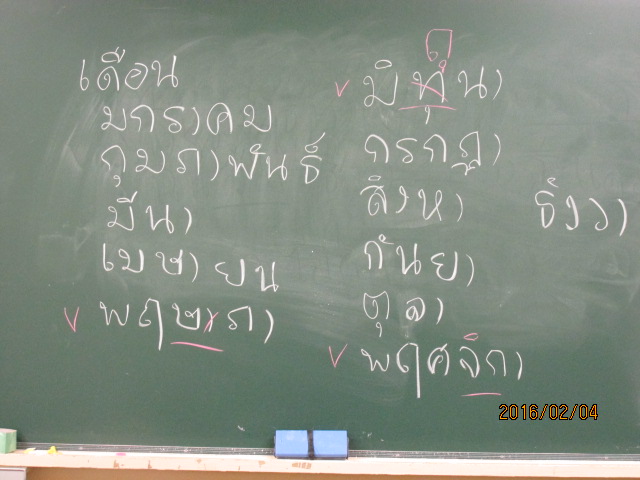 เดือน
มกราคม
กุมภาพันธ์
มีนา
เมษา ยน
พฤษภา
มิถุนา
กรกฎา
สิงหา
กันยา
ตุลา
พฤศจิกา
ธังวา
2016/02/04